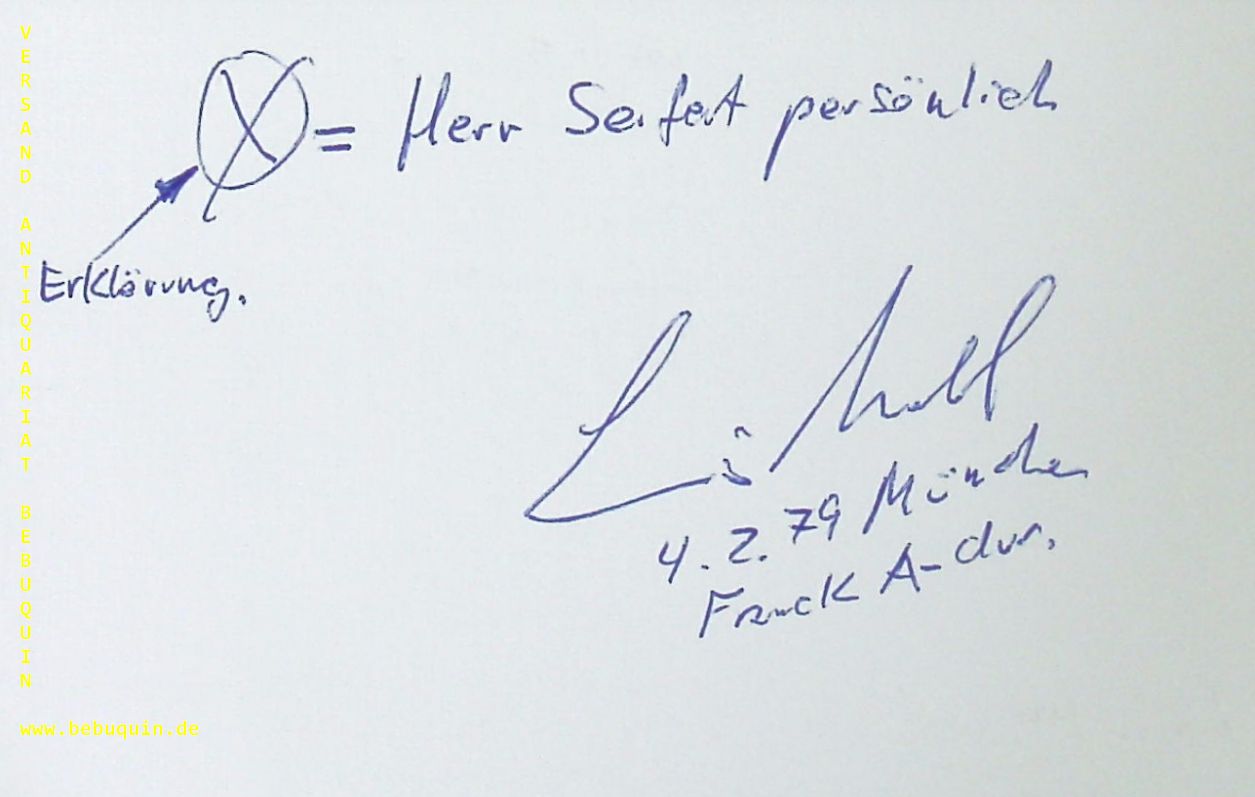 X = Herr Seifert persönlich
Erklärung.
4.2.79 München
Franck A-dur.
VERSAND ANTIQUARIAT BEBUQUIN
www.bebuquin.de